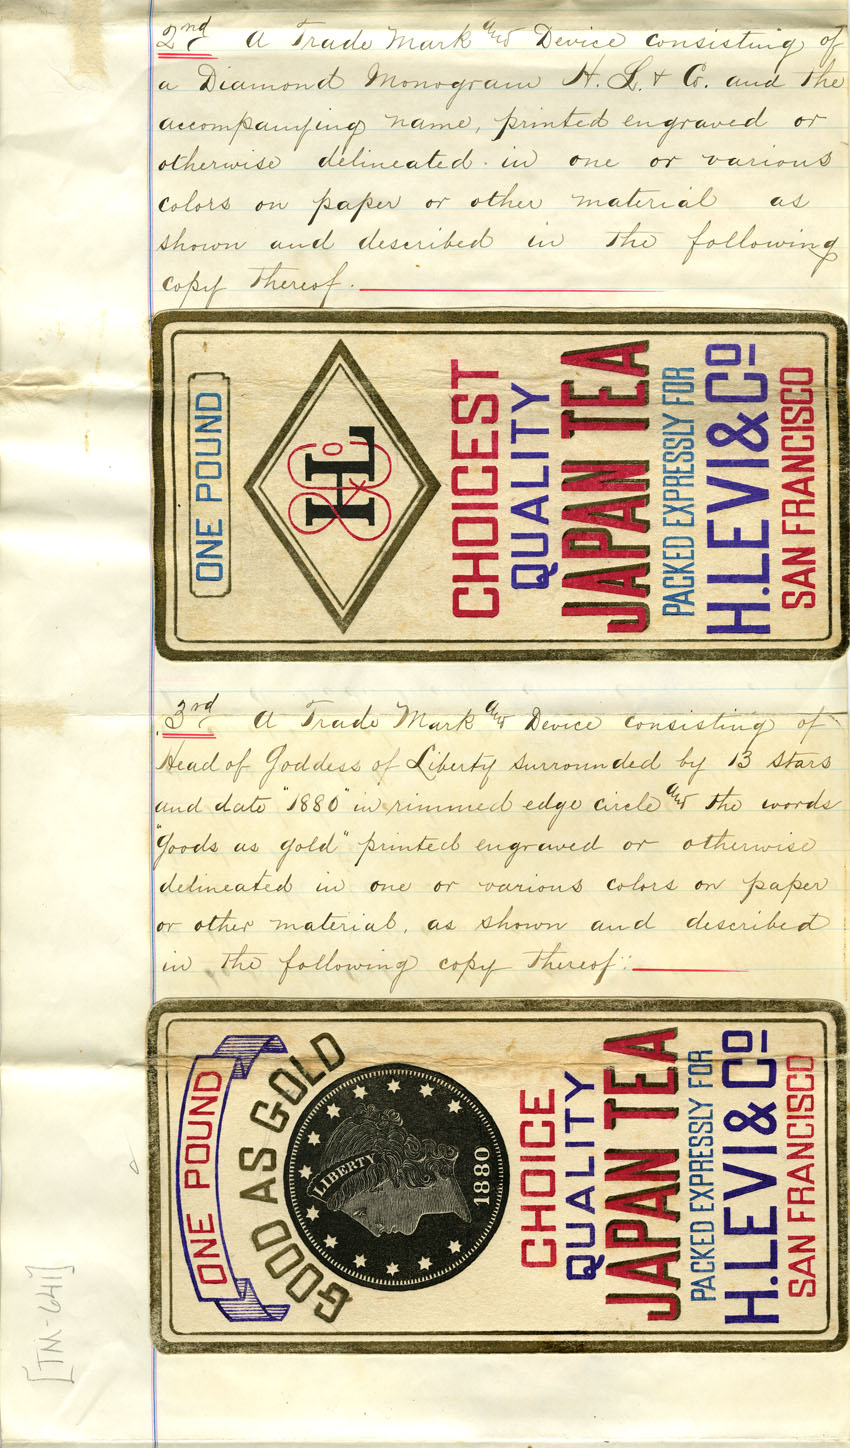 2nd A Trade Mark and Device consisting of
a Diamond Monogram H. L. & Co. and the
accompanying name, printed engraved or
otherwise delineated in one or various
colors on paper or other material as
shown and described in the following
copy thereof.
ONE POUND
HL & Co
CHOICEST
QUALITY
JAPAN TEA
PACKED EXPRESSLY FOR
H. LEVI & Co
SAN FRANCISCO
3rd A Trade Mark and Device consisting of
Head of Goddess of Liberty surrounded by 13 stars
and date "1880" in rimmed edge circle and the words
"Goods as gold" printed engraved or otherwise
delineated in one or various colors on paper
or other material, as shown and described
in the following copy thereof:
ONE POUND
GOOD AS GOLD
LIBERTY
1880
CHOICE
QUALITY
JAPAN TEA
PACKED EXPRESSLY FOR
H. LEVI & Co
SAN FRANCISCO
[TM-641]